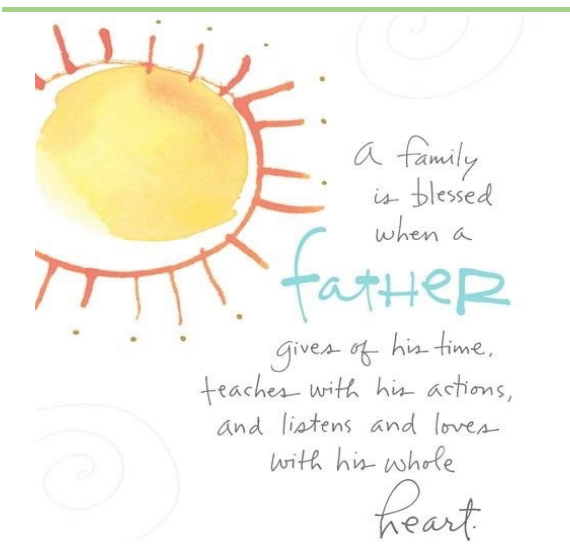 a family
is blessed
when a
fatHeR
gives of his time,
teaches with his actions,
and listens and loves
with his whole
heart.